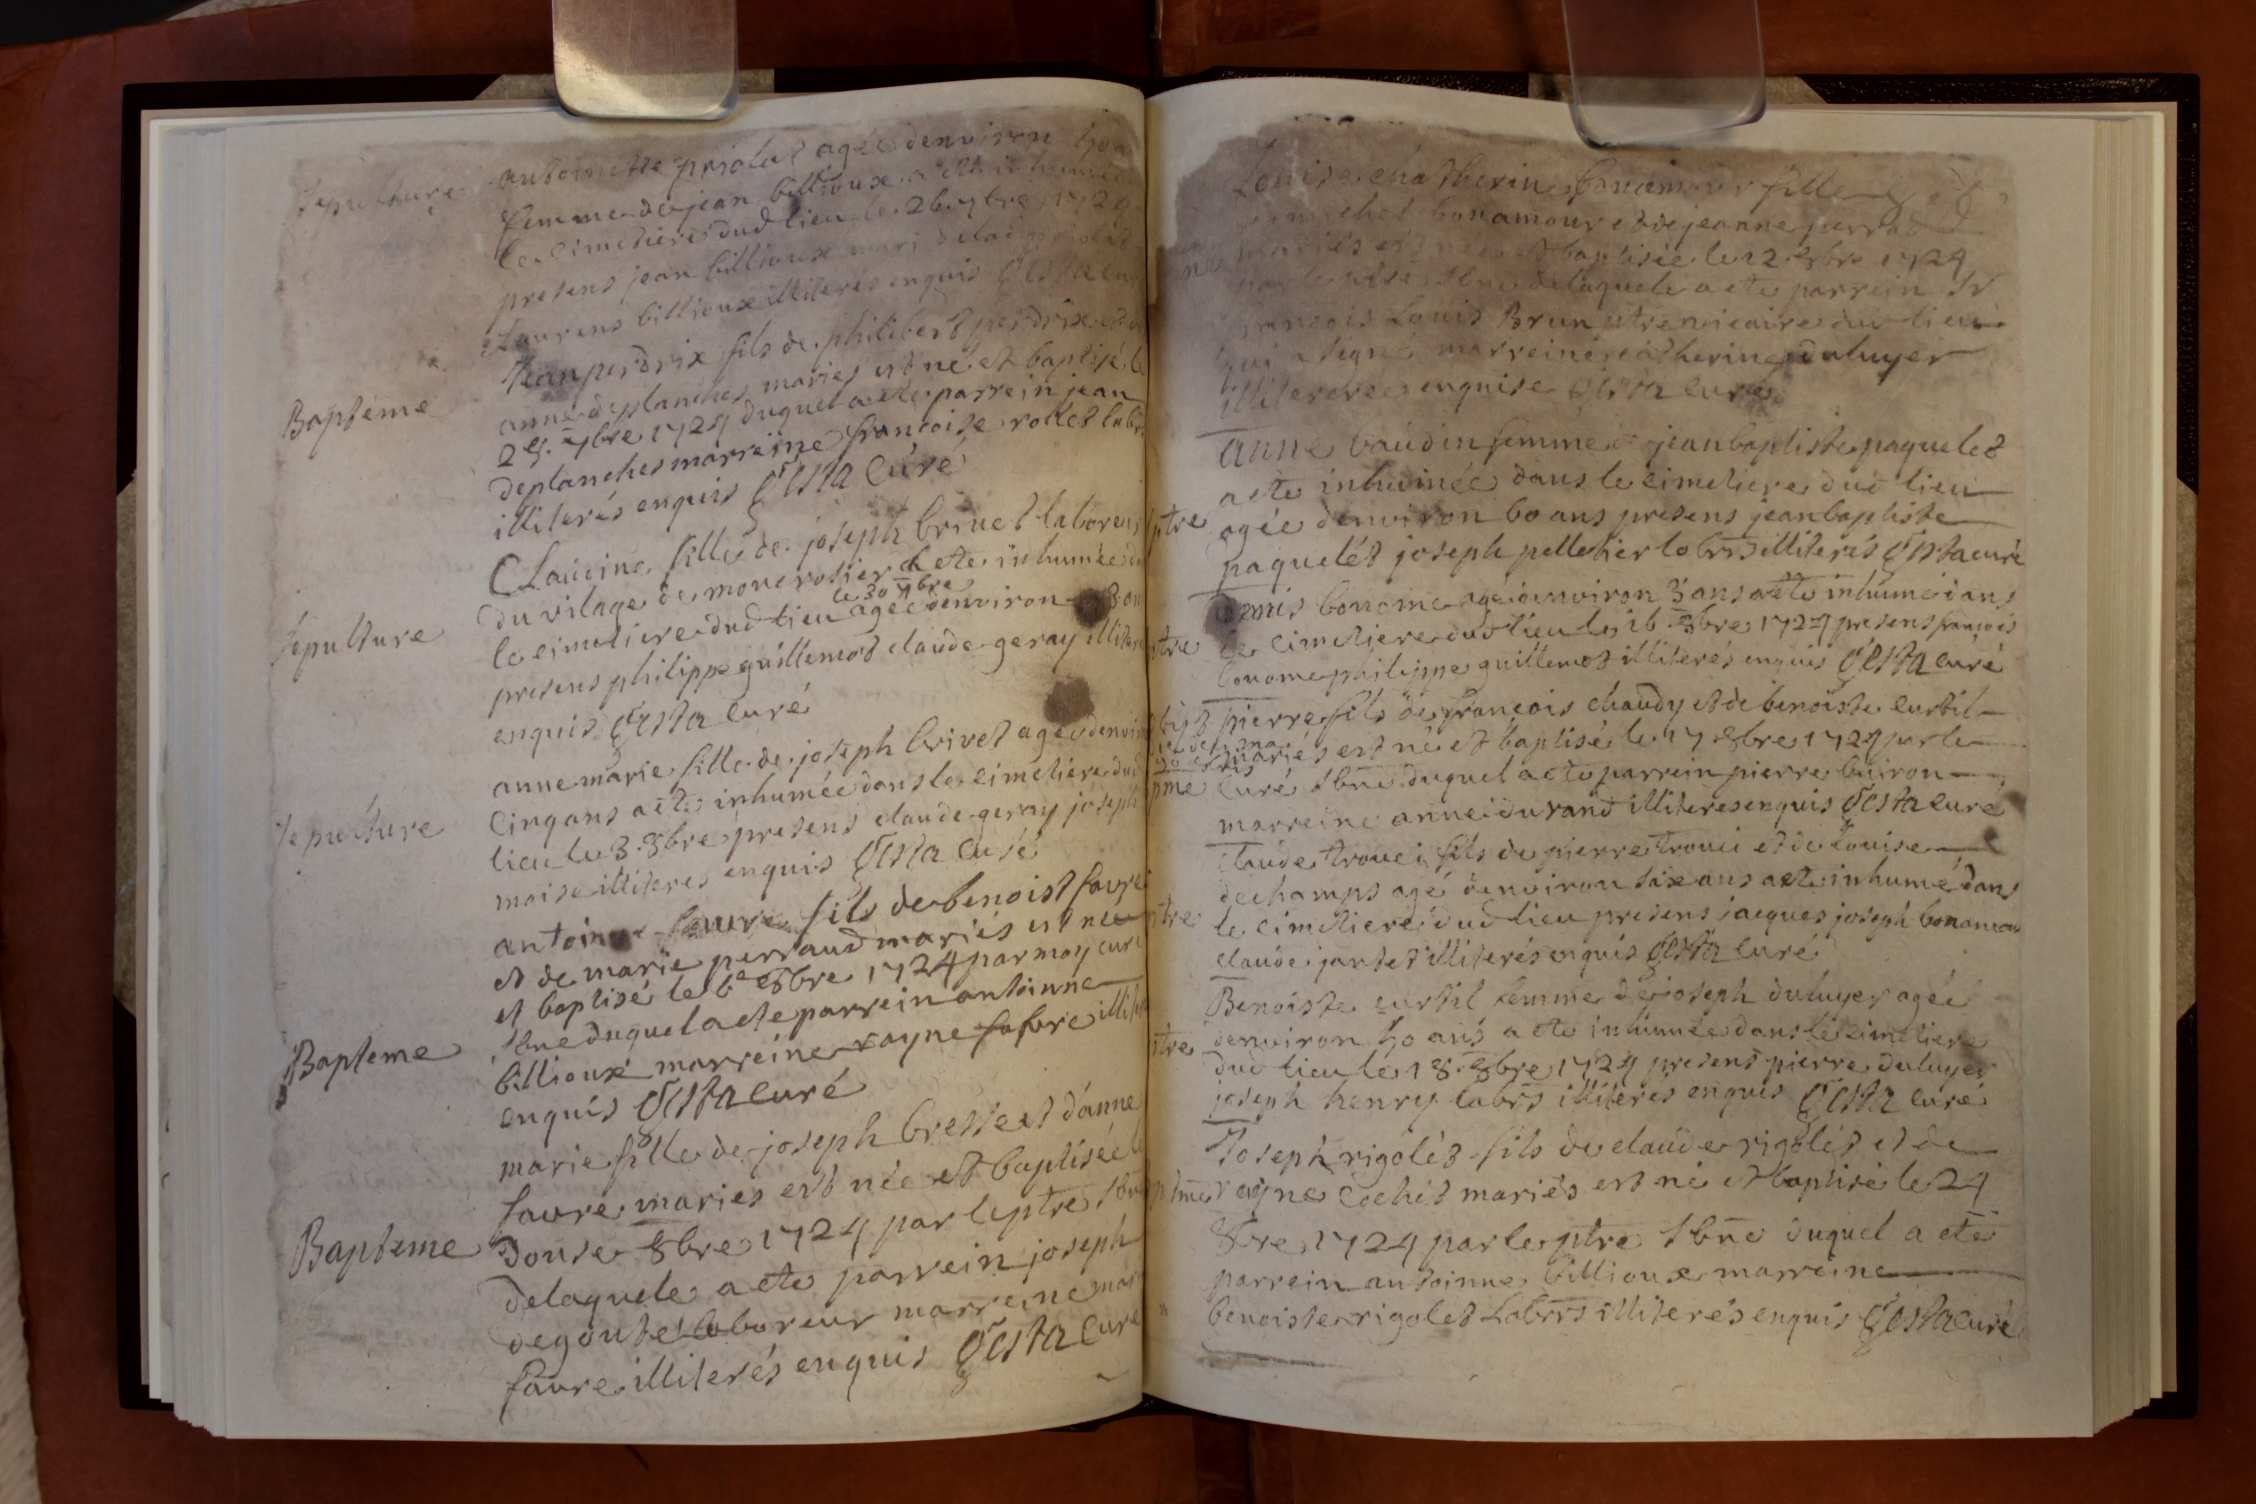 Sepulture
antoinette priolat agée denviron
femme de jean billioux a ete inhumée
le cimetiere dud lieu le 26 7bre 1724
presens jean billioux mari
Laurens billioux illiterés enquis Gesta curé
Bapteme
Jean perdrix fils de philibert perdrix et d
anne deplanches mariés est né et baptisé le
29 7bre 1724 duquel a ete parrein jean
deplanches marreine francoise rollet labr
illiterés enquis Gesta Curé
Sepulture
Claudine fille de joseph brivet laboreur
du vilage de moncrosier a ete inhumée d
le 30 7bre
le cimetiere dud lieu agée denviron 8 an
presens philippe guillemot claude geray illitere
enquis Gesta Curé
Sepulture
anne marie fille de joseph brivet agée denvir
cinq ans a ete inhumée dans le cimetiere dud
lieu le 3 8bre presens claude geray joseph
moise illiteres enquis Gesta Curé
Bapteme
antoine favre fils de benoist favre
et de marie perraud mariés est né
et baptisé le 6e 8bre 1724 par moy curé
sbne duquel a ete parrein antoinne
billioux marreine rayne fafvre illite
enquis Gesta Curé
Bapteme
marie fille de joseph bresse et danne
favre mariés est née et baptisée le
douse 8bre 1724 par le ptre sbn
delaquele a ete parrein joseph
degoute laboreur marreine mar
favre illiterés enquis Gesta Curé
Louise chatherine bonamour fille
michel bonamour et de jeanne perrat
mariés est née et baptisée le 12 8bre 1724
par le ptre sbne delaquele a ete parrein Sr
francois Louis Brun ptre vicaire dud lieu
qui a signé marreine catherine duluyer
illiterée enquise Gesta curé
ptre
anne baudin femme jean baptiste paquelet
a ete inhumée dans le cimetiere dud lieu
agée denviron 60 ans presens jean baptiste
paquelet joseph pelletier labrs illiterés Gesta curé
ptre
Denis bonome agé denviron 3 ans a ete inhumé dans
le cimetiere dud lieu le 16 8bre 1724 presens francois
bonome philippe guillemot illiterés enquis Gesta curé
pme
pierre fils de francois chaudy et de benoiste curtil
mariés est né et baptisé le 17 8bre 1724 par le
curé sbne duquel a ete parrein pierre buiron
marreine anne durand illiteres enquis Gesta curé
ptre
claude trouci fils de pierre trouci et de Louise
dechamps agé denviron six ans a ete inhumé dans
le cimetiere dud lieu presens jacques joseph bonamour
claude jantet illiterés enquis Gesta curé
ptre
Benoiste curtil femme de joseph duluyer agée
denviron 40 ans a ete inhumée dans le cimetiere
dud lieu le 18 8bre 1724 presens pierre duluyer
joseph henry labrs illiterés enquis Gesta curé
ptme
Joseph rigolet fils de claude rigolet et de
rayne cochet mariés est né et baptisé le 24
8bre 1724 par le ptre sbne duquel a ete
parrein antoinne billioux marreine
benoiste rigolet Labrs illiterés enquis Gesta curé